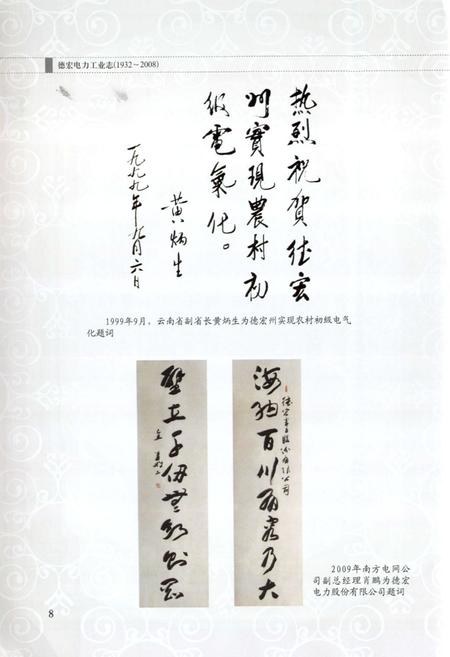 德宏电力工业志(1932～2008)
热烈祝贺德宏
州實現農村初
级電氣化。
黄炳生
一九九九年九月六日
1999年9月，云南省副省长黄炳生为德宏州实现农村初级电气
化题词
德宏电力股份有限公司
海纳百川有容乃大
壁立千仞無欲则刚
2009年南方电网公
司副总经理肖鹏为德宏
电力股份有限公司题词
8